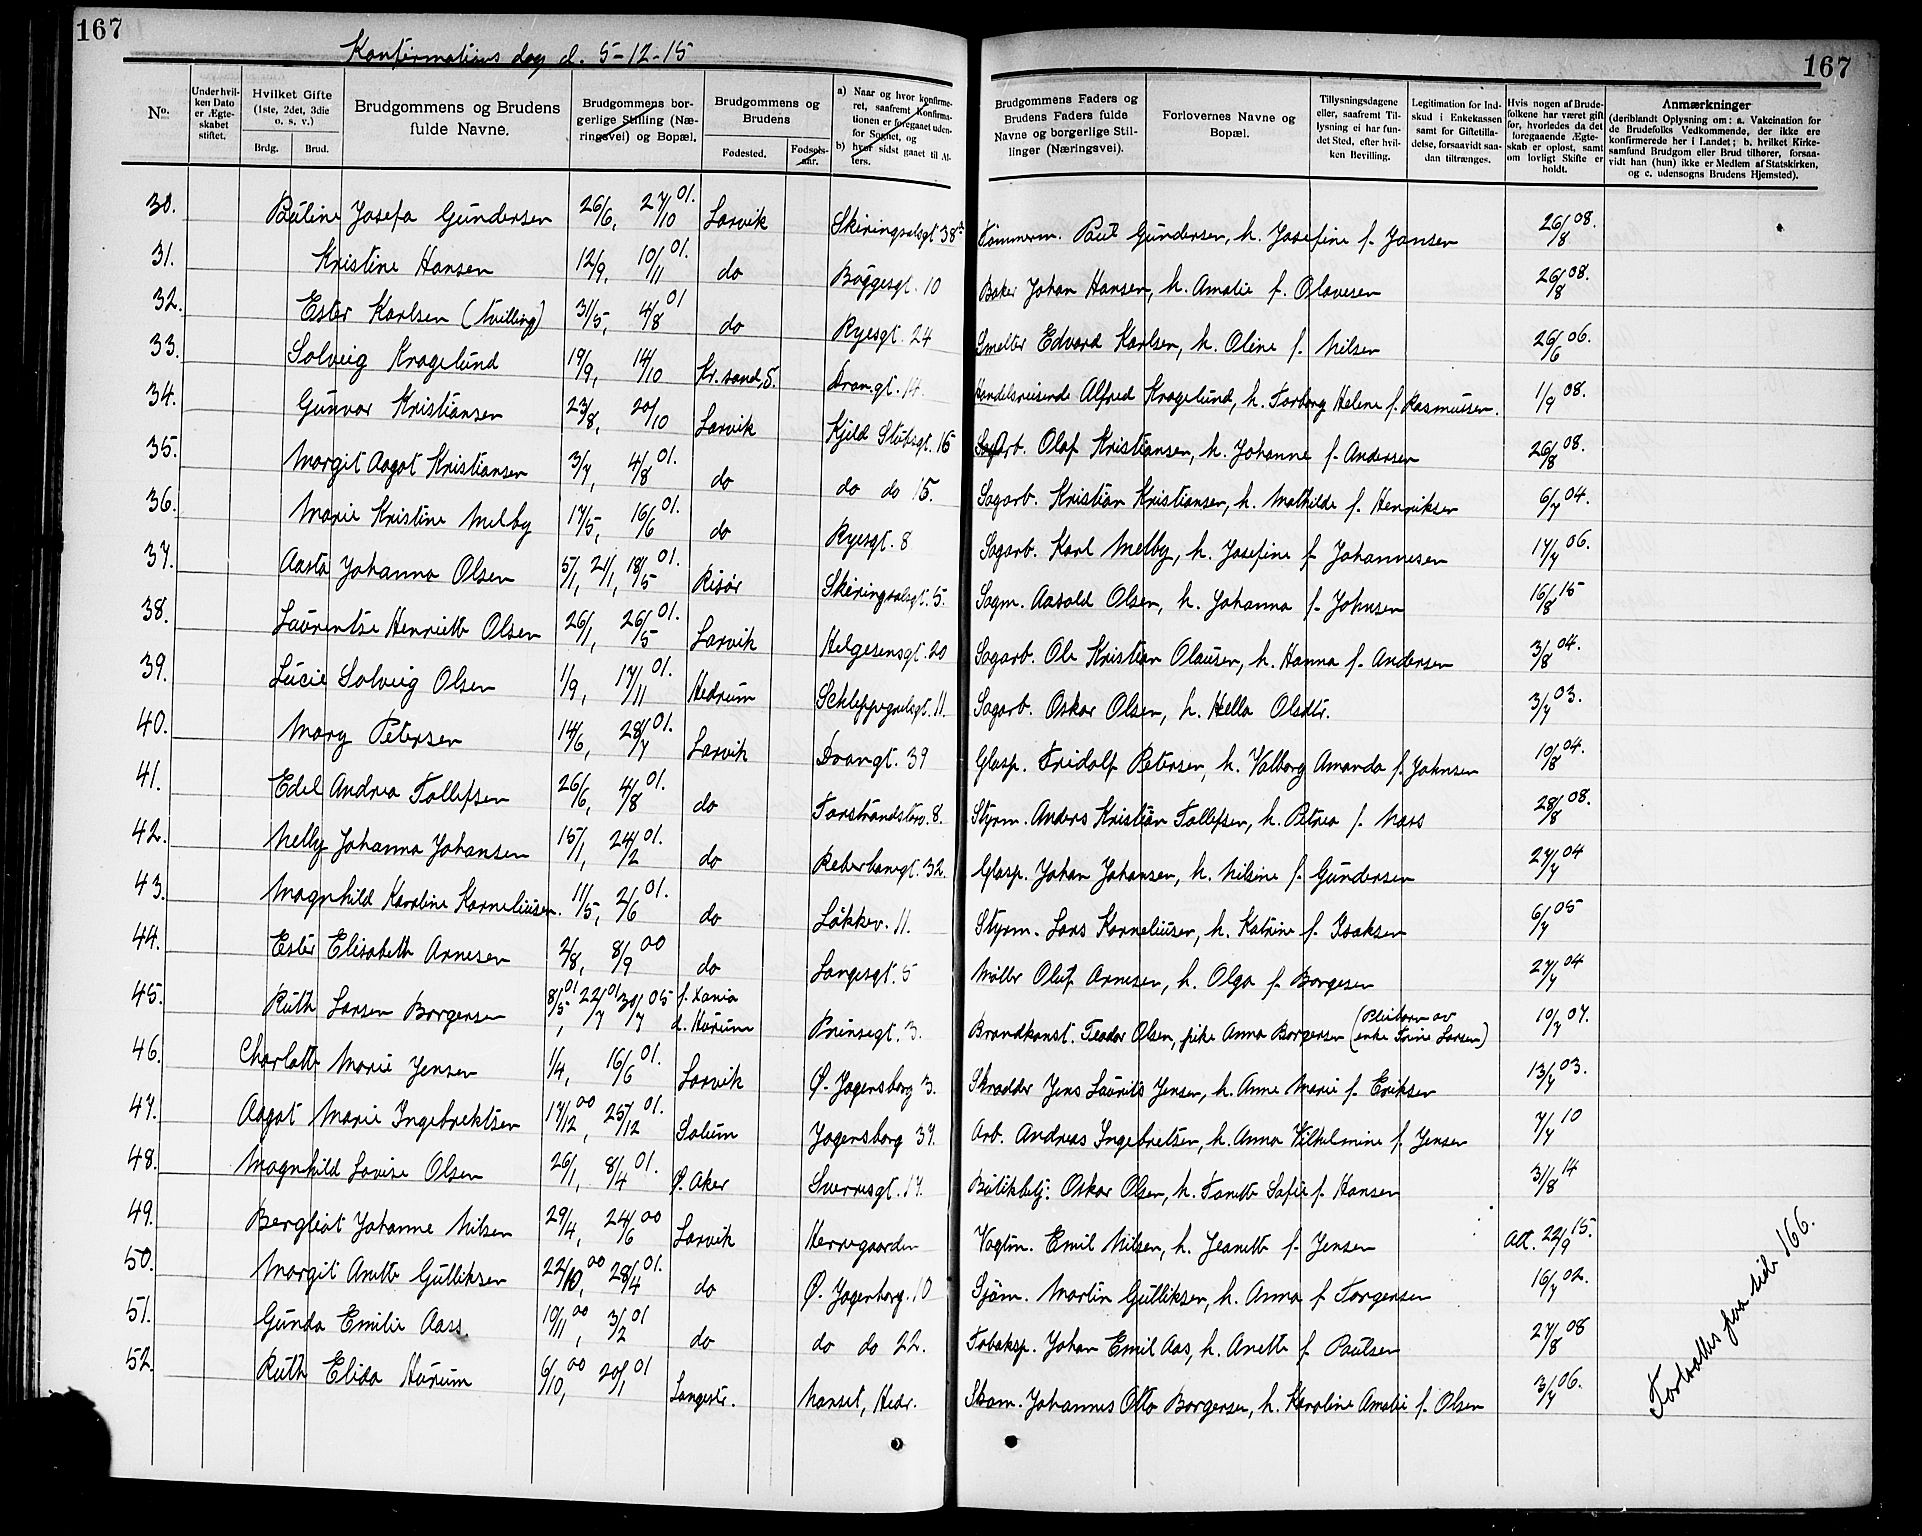 167
167
Konfirmations dag d. 5-12-15
No.
Under hvilken Dato er Ægteskabet stiftet.
Hvilket Gifte (1ste, 2det, 3die o. s. v.)
Brdg. Brud.
Brudgommens og Brudens fulde Navne.
Brudgommens borgerlige Stilling (Næringsvei) og Bopæl.
Brudgommens og Brudens
Fødested. Fødselsaar.
a) Naar og hvor konfirmeret, saafremt Konfirmationen er foregaaet udenfor Sognet, og
b) hvor sidst gaaet til Alters.
Brudgommens Faders og Brudens Faders fulde Navne og borgerlige Stillinger (Næringsvei).
Forlovernes Navne og Bopæl.
Tillysningsdagene eller, saafremt Tillysning ei har fundet Sted, efter hvilken Bevilling.
Legitimation for Indskud i Enkekassen samt for Giftetilladelse, forsaavidt saadan tiltrænges.
Hvis nogen af Brudefolkene har været gift før, hvorledes da det foregaaende Ægteskab er opløst, samt om lovligt Skifte er holdt.
Anmærkninger
(deriblandt Oplysning om: a. Vakcination for de Brudefolks Vedkommende, der ikke ere konfirmerede her i Landet; b. hvilket Kirkesamfund Brudgom eller Brud tilhører, forsaavidt han (hun) ikke er Medlem af Statskirken, og c. udensogns Brudens Hjemsted).
30. Pauline Josefa Gundersen 26/6, 27/10 01. Larvik Skiringsalsgt. 38 Tømmerm. Paul Gundersen, h. Josefine f. Jansen 26/8 08.
31. Kristine Hansen 12/9, 10/11 01. do Bøggesgt. 10 Baker Johan Hansen, h. Amalie f. Olavesen 26/8 08.
32. Ester Karlsen (tvilling) 31/5, 4/8 01 do Ryesgt. 24 Smelter Edvard Karlsen, h. Oline f. Nilsen 26/6 06.
33. Solveig Kragelund 19/9, 14/10 Kr.sand S. Dron.gt. 14. Handelsreisende Alfred Kragelund, h. Torborg Helene f. Rasmussen. 1/9 08.
34. Gunvor Kristiansen 23/8, 20/10 Larvik Kjeld Stubsgt. 15 Sagarb. Olaf Kristiansen, h. Johanne f. Andersen 26/8 08.
35. Margit Aagot Kristiansen 3/7, 4/8 01. do do do 15. Sagarb. Kristian Kristiansen, h. Mathilde f. Henriksen 6/7 04.
36. Marie Kristine Melby 17/5, 16/6 01. do Ryesgt. 8 Sagarb. Karl Melby, h. Josefine f. Johannesen 17/7 06.
37. Aasta Johanna Olsen 5/1, 21/1, 18/5 01. Risør Skiringsalsgt. 5. Sagm. Aasold Olsen, h. Johanna f. Johnsen 16/8 15
38. Laurentse Henriette Olsen 26/1, 26/5 01. Larvik Helgesensgt. 20 Sagarb. Ole Kristian Olausen, h. Hanna f. Andersen 3/8 04.
39. Lucie Solveig Olsen 1/9, 17/11 01. Hedrum Schleppegrelsgt. 11. Sagarb. Oskar Olsen, h. Hella Olsdtr. 3/7 03.
40. Mary Petersen 14/6, 28/7 01. Larvik Drongt. 39 Glasp. Fridolf Petersen, h. Valborg Amanda f. Johnsen 10/8 04.
41. Edel Andrea Tollefsen 26/6, 4/8 01. do Torstrandsbrv. 8. Styrm. Anders Kristian Tollefsen, h. Petrea f. Moss 28/8 08.
42. Nelly Johanna Johansen 15/1, 24/2 01. do Reberbanegt. 32. Glasp. Johan Johansen, h. Nilsine f. Gundersen 27/7 04
43. Magnhild Karoline Korneliusen. 11/5, 2/6 01. do Løkkev. 11. Styrm. Lars Korneliusen, h. Katrine f. Isaksen 6/7 05
44. Ester Elisabeth Arnesen 2/8, 8/9 00 do Langesgt. 5 Møller Oluf Arnesen, h. Olga f. Borgesen 27/7 04
45. Ruth Larsen Borgersen 8/5 01, 22/7 01 30/7 05 f. Xania d. Hurum Prinsegt. 3. Brandkonst. Teodor Olsen, pike Anna Borgersen (Pleibarn av enke Trine Larsen) 10/7 07.
46. Charlotte Marie Jensen 1/4, 16/6 01. Larvik Ø. Jegersborg 3. Skrædder Jens Laurits Jensen, h. Anne Marie f. Eriksen 13/7 03.
47. Aagot Marie Ingebrektsen 17/12 00, 25/12 01. Solum Jegersborg 37. Arb. Andreas Ingebretsen, h. Anna Vilhelmine f. Jensen 7/7 10
48. Magnhild Lovise Olsen 26/1, 8/4 01. Ø. Aker Sverresgt. 17. Butikbetj. Oskar Olsen, h. Tanette Sofie f. Hansen 31/8 14
49. Bergliot Johanne Nilsen 29/4, 24/6 00 Larvik Herregaarden Vogtm. Emil Nilsen, h. Jeanette f. Jensen Att. 22/9 15.
50. Margit Anette Gulliksen 22/10 00, 28/4 01. do Ø. Jegerborg. 10 Sjøm. Martin Gulliksen, h. Anna f. Torgersen 16/7 02.
51. Gunda Emilie Aass 10/11 00, 3/2 01 do do do 22. Tobaksp. Johan Emil Aas, h. Anette f. Paulsen 27/8 08
52. Ruth Elida Hurum 6/10 00, 20/1 01 Langestr. Nanset, Hedr. Skom. Johannes Otto Borgersen, h. Karoline Amalie f. Olsen 3/7 06.
Fortsættes paa side 166.